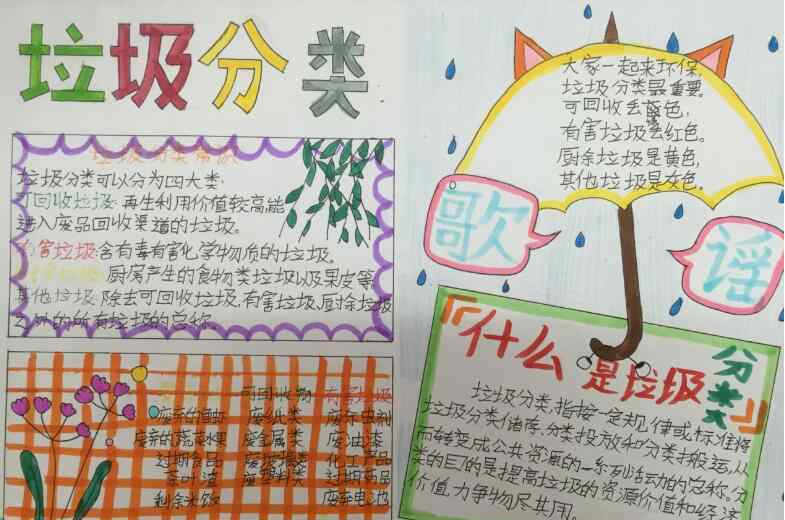 垃圾分类
垃圾分类知识
垃圾分类可以分为四大类:
可回收垃圾:再生利用价值较高能
进入废品回收渠道的垃圾。
有害垃圾:含有毒有害化学物质的垃圾。
厨房产生的食物类垃圾以及果皮等
其他垃圾:除去可回收垃圾、有害垃圾、厨余垃圾
之外的所有垃圾的总称。
可回收物 有害垃圾
废纸类 废杀虫剂
废弃的蔬菜水果 废金属类 废油漆
过期食品 化工产品
茶叶渣 废塑料类 过期药品
剩余米饭 废弃电池
大家一起来环保,
垃圾分类最重要。
可回收丢蓝色,
有害垃圾丢红色。
厨余垃圾是黄色,
其他垃圾是灰色。
歌谣
『什么是垃圾分类』
垃圾分类,指按一定规律或标准将
垃圾分类储存、分类投放和分类搬运,从
而转变成公共资源的一系列活动的总称。分
类的目的是提高垃圾的资源价值和经济
价值,力争物尽其用。